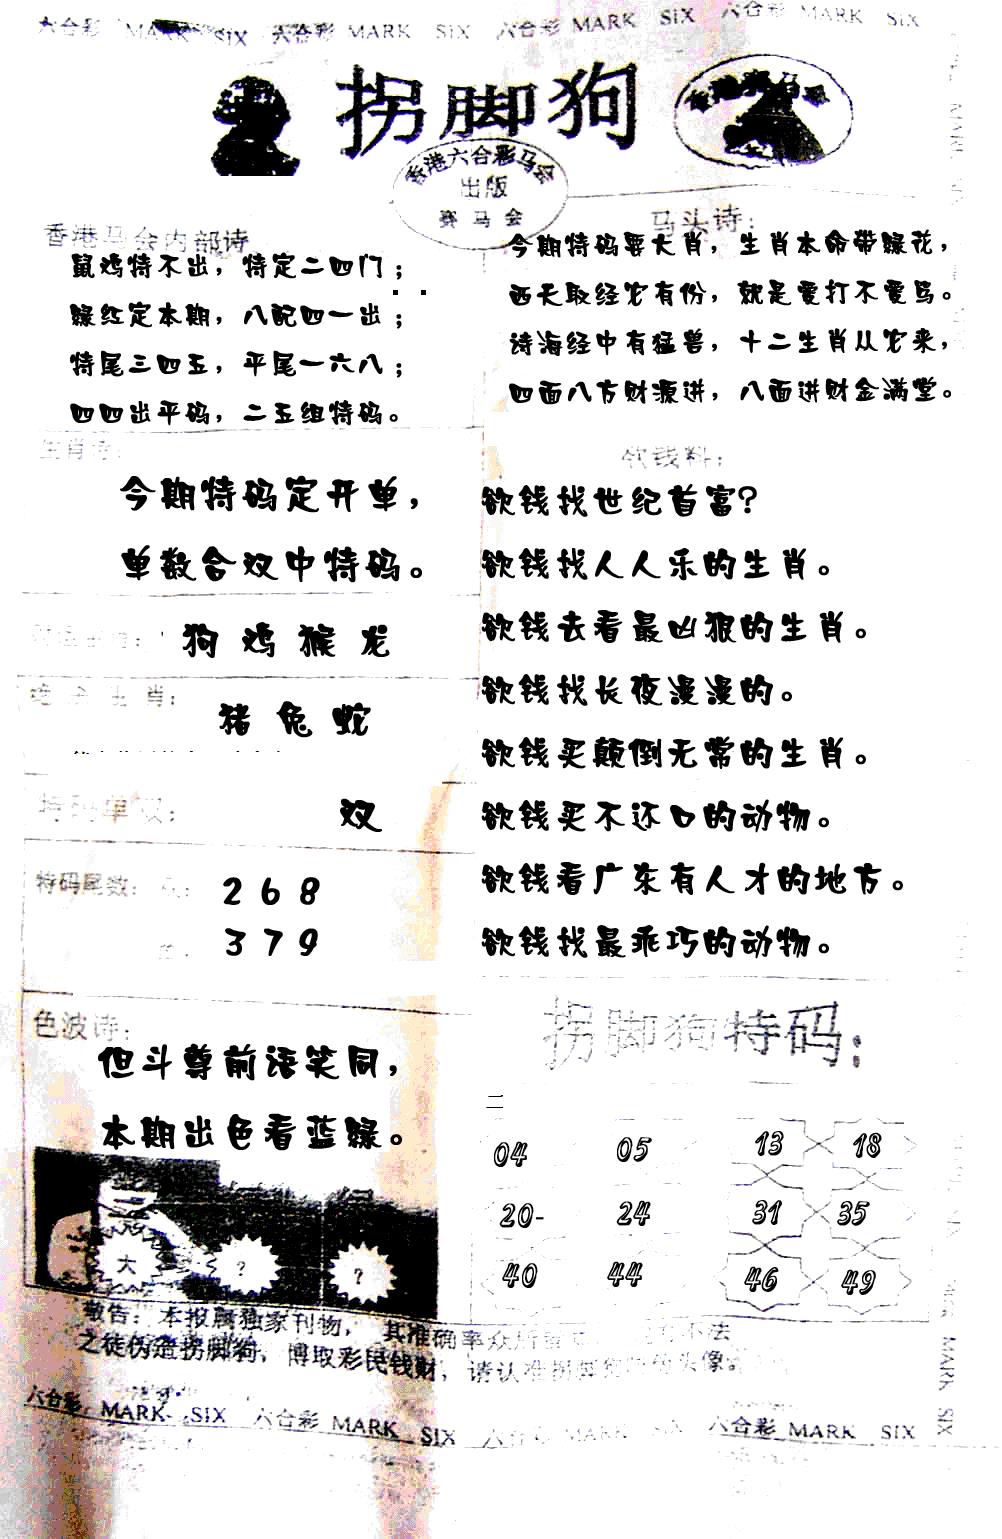 六合彩 MARK SIX 六合彩 MARK SIX 六合彩 MARK SIX 六合彩 MARK SIX
拐脚狗
香港六合彩马会
出版
赛马会
香港马会内部诗
鼠鸡特不出，特定二四门；
绿红定本期，八配四一出；
特尾三四五，平尾一六八；
四四出平码，二五组特码。
马头诗：
今期特码要大肖，生肖本命带绿花，
西天取经它有份，就是爱打不爱骂。
诗海经中有猛兽，十二生肖从它来，
四面八方财源进，八面进财金满堂。
生肖诗：
今期特码定开单，
单数合双中特码。
狗 鸡 猴 龙
绝杀生肖：
猪 兔 蛇
特码单双：
双
特码尾数：
2 6 8
3 7 9
欲钱料：
欲钱找世纪首富?
欲钱找人人乐的生肖。
欲钱去看最凶狠的生肖。
欲钱找长夜漫漫的。
欲钱买颠倒无常的生肖。
欲钱买不还口的动物。
欲钱看广东有人才的地方。
欲钱找最乖巧的动物。
色波诗：
但斗尊前语笑同，
本期出色看蓝绿。
大 ? ?
拐脚狗特码：
二
04 05 13 18
20- 24 31 35
40 44 46 49
敬告：本报属独家刊物，其准确率众所 不法
之徒伪造拐脚狗，博取彩民钱财，请认准拐脚狗 头像。
六合彩 MARK SIX 六合彩 MARK SIX 六合彩 MARK SIX 六合彩 MARK SIX
MARK SIX